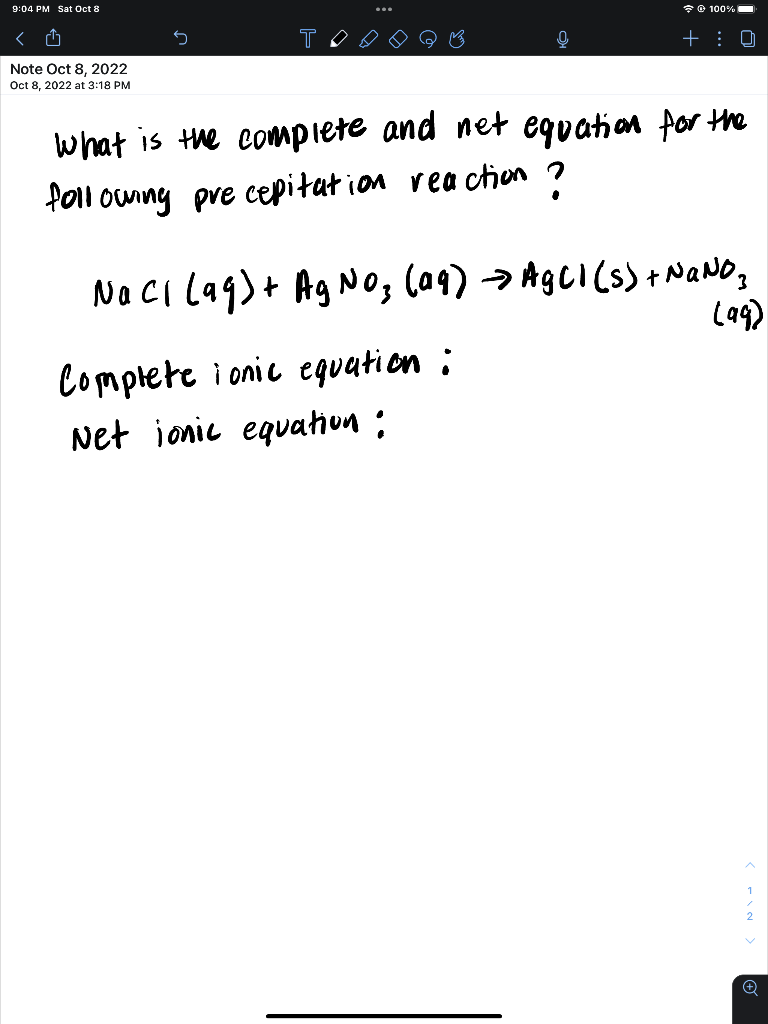 9:04 PM Sat Oct 8 100%
Note Oct 8, 2022
Oct 8, 2022 at 3:18 PM
What is the complete and net equation for the
following precepitation reaction ?
NaCl (aq) + AgNO₃ (aq) → AgCl (s) + NaNO₃
(aq)
Complete ionic equation :
Net ionic equation :
1
/
2